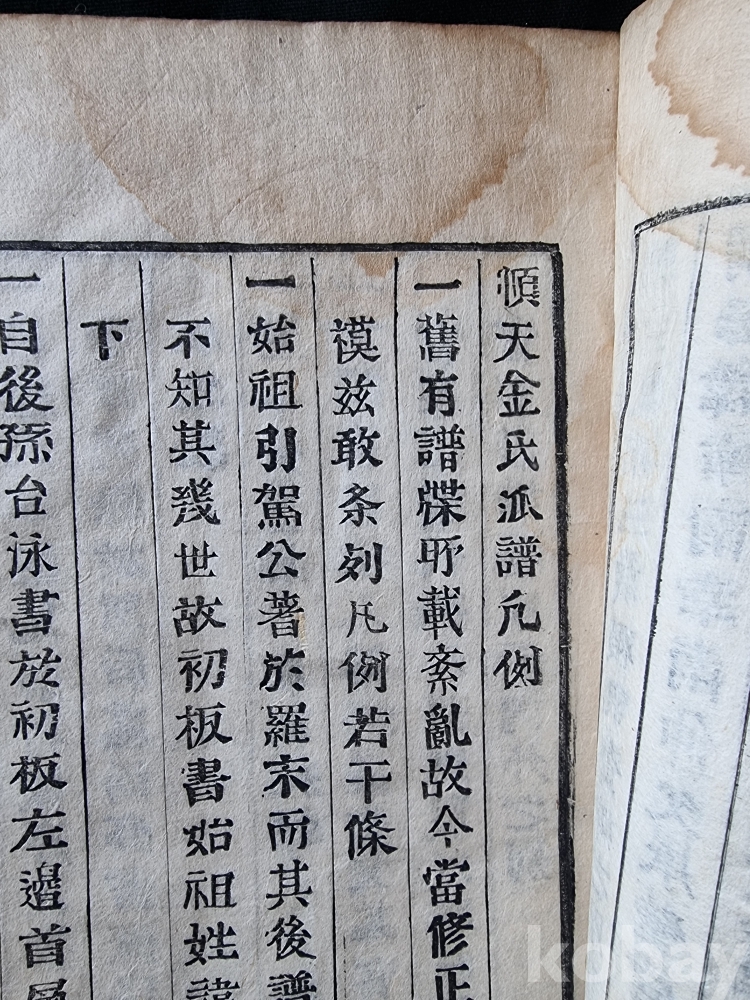 順天金氏派譜凡例
一舊有譜牒所載紊亂故今當修正
模玆敢条列凡例若干條
一始祖引駕公著於羅末而其後譜
不知其幾世故初板書始祖姓諱
下
一自後孫台泳書於初板左邉首
kobay